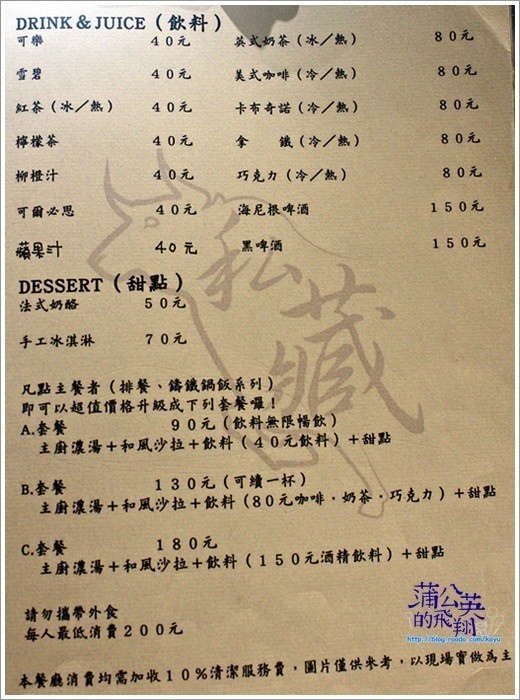 DRINK & JUICE（飲料）
可樂 40元 英式奶茶（冰／熱） 80元
雪碧 40元 美式咖啡（冷／熱） 80元
紅茶（冰／熱） 40元 卡布奇諾（冷／熱） 80元
檸檬茶 40元 拿 鐵（冷／熱） 80元
柳橙汁 40元 巧克力（冷／熱） 80元
可爾必思 40元 海尼根啤酒 150元
蘋果汁 40元 黑啤酒 150元
DESSERT（甜點）
法式奶酪 50元
手工冰淇淋 70元
私藏
凡點主餐者（排餐、鑄鐵鍋飯系列）
即可以超值價格升級成下列套餐囉！
A.套餐 90元（飲料無限暢飲）
主廚濃湯＋和風沙拉＋飲料（40元飲料）＋甜點
B.套餐 130元（可續一杯）
主廚濃湯＋和風沙拉＋飲料（80元咖啡．奶茶．巧克力）＋甜點
C.套餐 180元
主廚濃湯＋和風沙拉＋飲料（150元酒精飲料）＋甜點
請勿攜帶外食
每人最低消費200元
本餐廳消費均需加收10%清潔服務費，圖片僅供參考，以現場實做為主
蒲公英的飛翔
http://blog.roodo.com/koyu